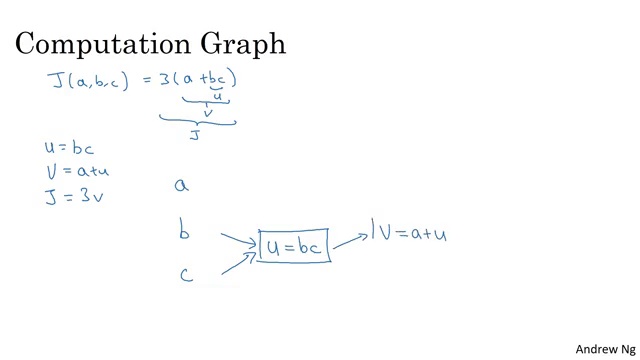 Computation Graph
J(a,b,c) = 3(a+bc)
u
v
J
u = bc
V = a+u
J = 3v
a
b
u = bc
V = a+u
c
Andrew Ng